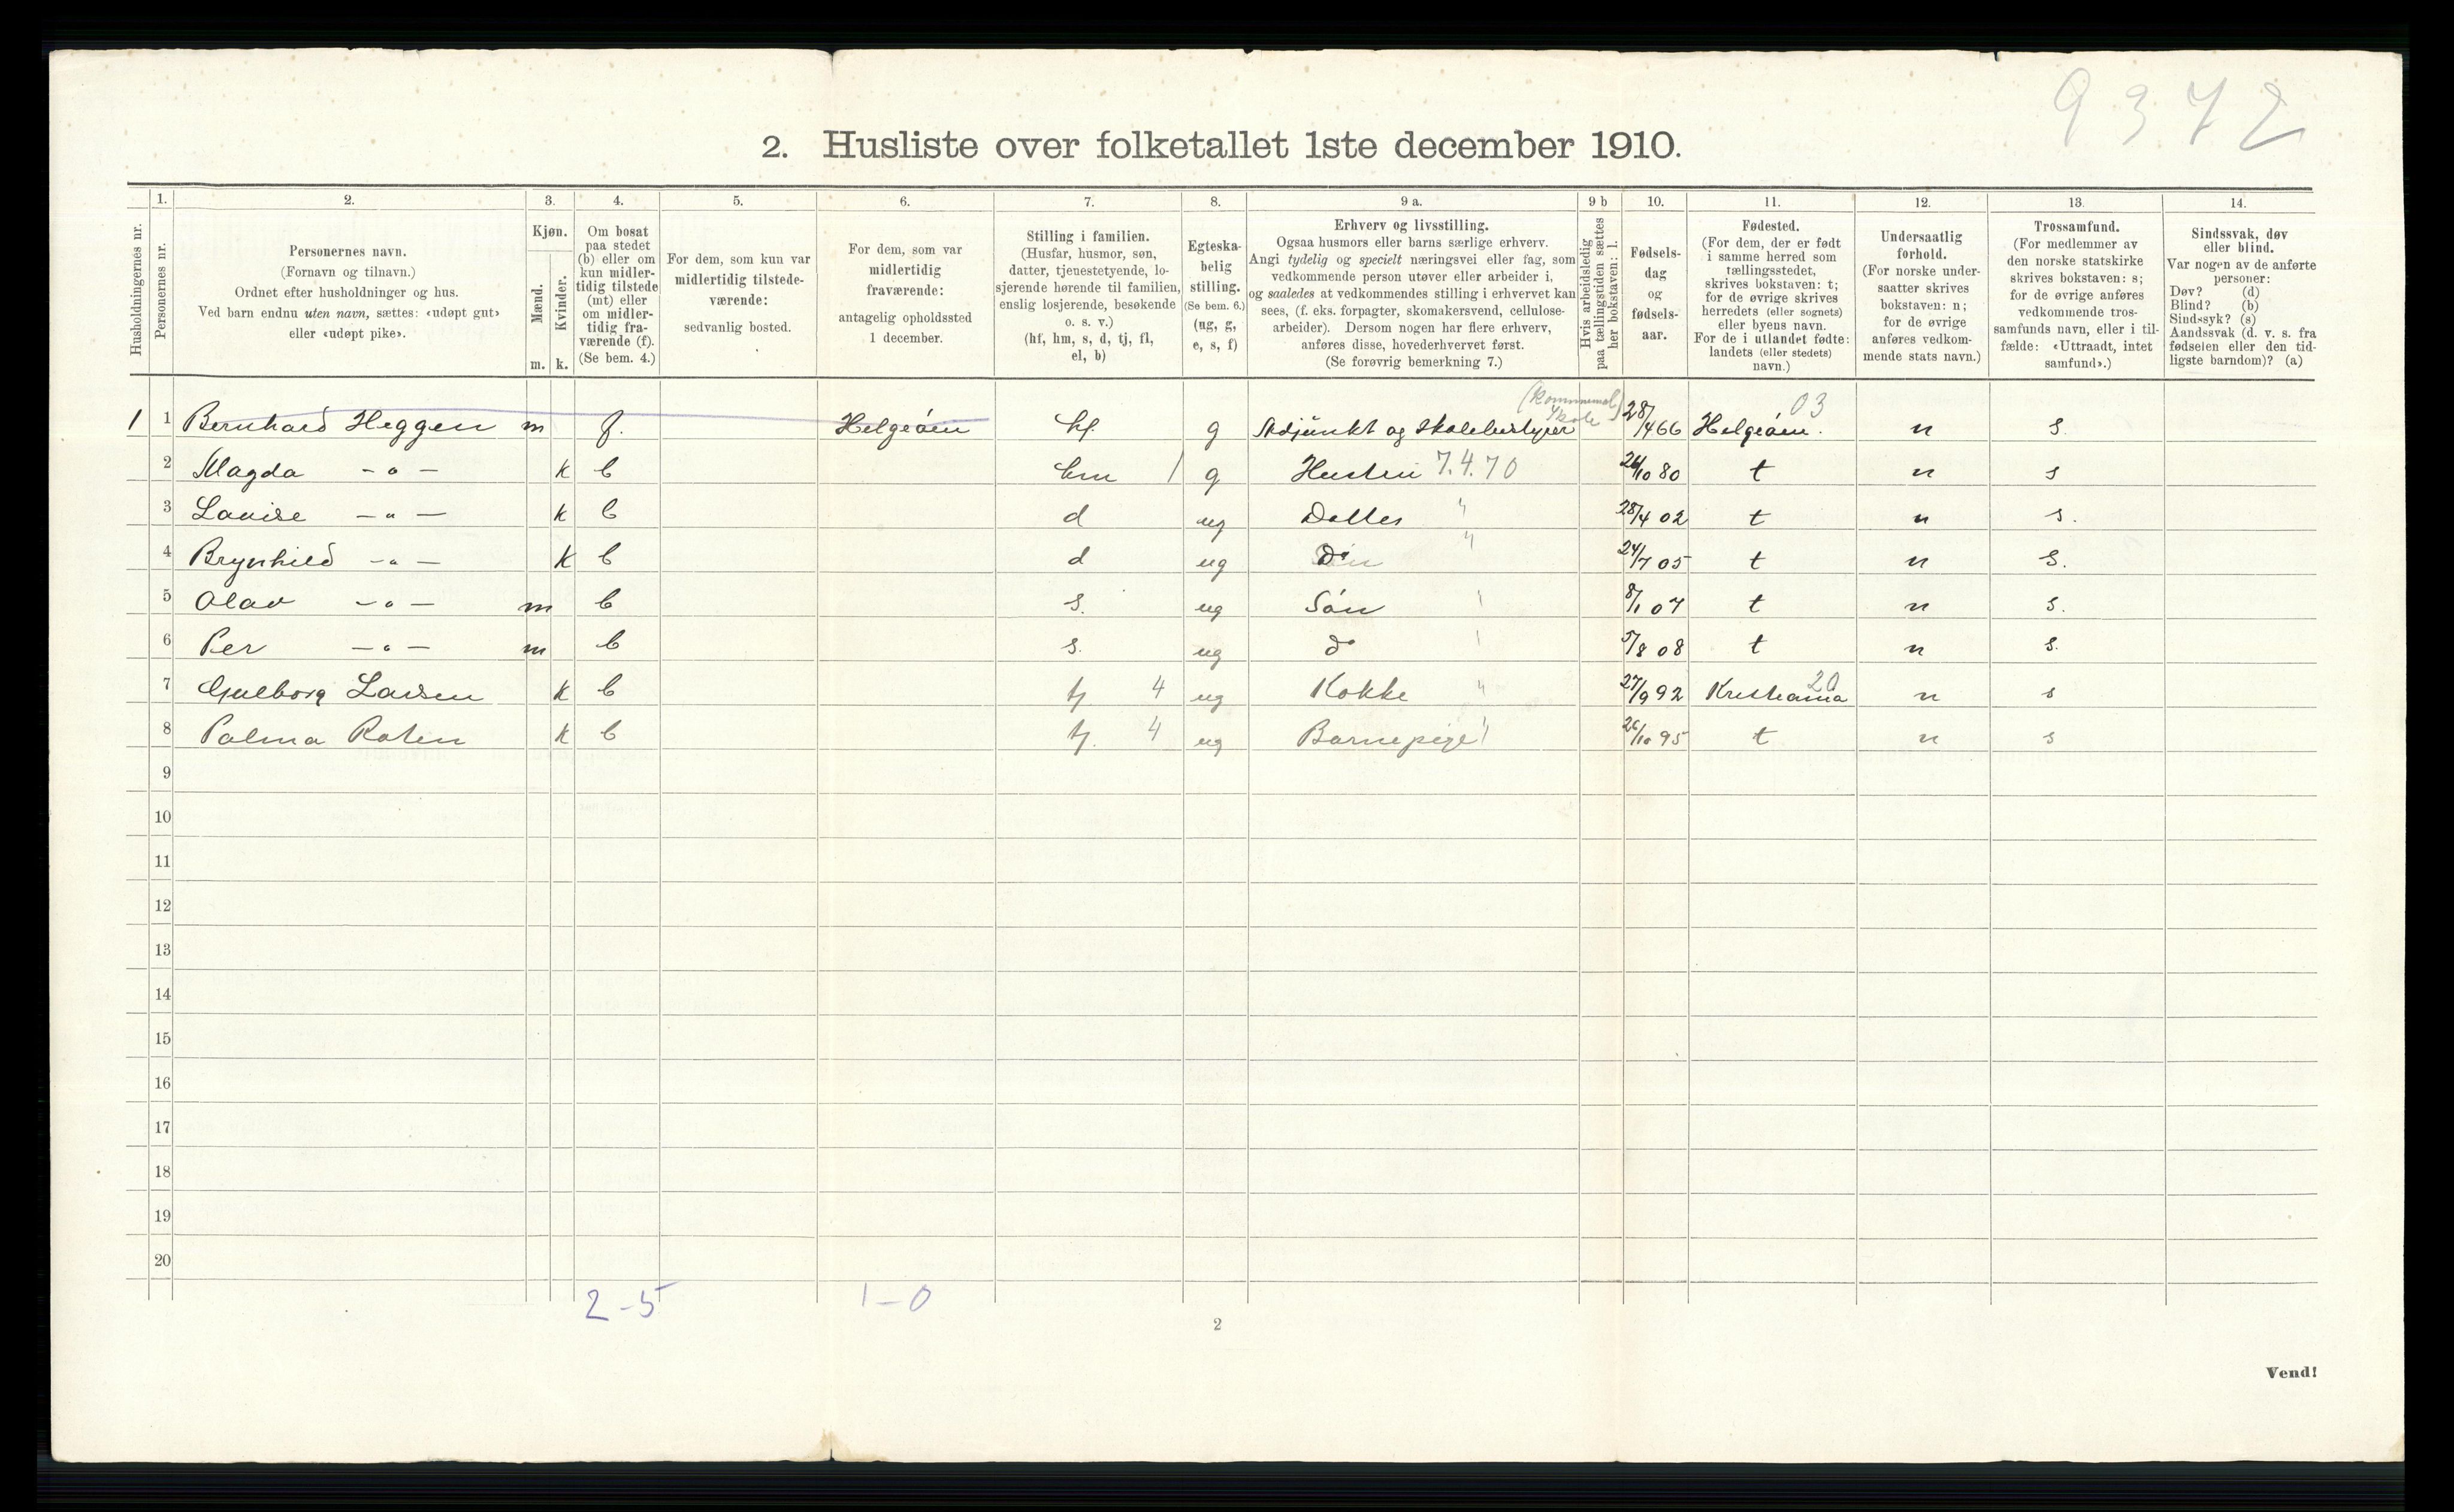 9372
2. Husliste over folketallet 1ste december 1910.
Husholdningernes nr.
1.
Personernes nr.
2.
Personernes navn.
(Fornavn og tilnavn.)
Ordnet efter husholdninger og hus.
Ved barn endnu uten navn, sættes: «udøpt gut»
eller «udøpt pike».
3.
Kjøn.
Mænd.
Kvinder.
m. k.
4.
Om bosat
paa stedet
(b) eller om
kun midler-
tidig tilstede
(mt) eller
om midler-
tidig fra-
værende (f).
(Se bem. 4.)
5.
For dem, som kun var
midlertidig tilstede-
værende:
sedvanlig bosted.
6.
For dem, som var
midlertidig
fraværende:
antagelig opholdssted
1 december.
7.
Stilling i familien.
(Husfar, husmor, søn,
datter, tjenestetyende, lo-
sjerende hørende til familien,
enslig losjerende, besøkende
o. s. v.)
(hf, hm, s, d, tj, fl,
el, b)
8.
Egteska-
belig
stilling.
(Se bem. 6.)
(ug, g,
e, s, f)
9 a.
Erhverv og livsstilling.
Ogsaa husmors eller barns særlige erhverv.
Angi tydelig og specielt næringsvei eller fag, som
vedkommende person utøver eller arbeider i,
og saaledes at vedkommendes stilling i erhvervet kan
sees, (f. eks. forpagter, skomakersvend, cellulose-
arbeider). Dersom nogen har flere erhverv,
anføres disse, hovederhvervet først.
(Se forøvrig bemerkning 7.)
9 b
Hvis arbeidsledig
paa tællingstiden sættes
her bokstaven: l.
10.
Fødsels-
dag
og
fødsels-
aar.
11.
Fødested.
(For dem, der er født
i samme herred som
tællingsstedet,
skrives bokstaven: t;
for de øvrige skrives
herredets (eller sognets)
eller byens navn.
For de i utlandet fødte:
landets (eller stedets)
navn.)
12.
Undersaatlig
forhold.
(For norske under-
saatter skrives
bokstaven: n;
for de øvrige
anføres vedkom-
mende stats navn.)
13.
Trossamfund.
(For medlemmer av
den norske statskirke
skrives bokstaven: s;
for de øvrige anføres
vedkommende tros-
samfunds navn, eller i til-
fælde: «Uttraadt, intet
samfund».)
14.
Sindssvak, døv
eller blind.
Var nogen av de anførte
personer:
Døv? (d)
Blind? (b)
Sindssyk? (s)
Aandssvak (d. v. s. fra
fødselen eller den tid-
ligste barndom)? (a)
(kommunal Skole) 03
1 1 Bernhard Heggen m f. Helgeøen hf. g Adjunkt og Skolebestyrer 28/4 66 Helgeøen. n s.
2 Magda -"- k b hm 1 g Hustru 7.4.70 26/10 80 t n s
3 Louise -"- k b d ug Datter " 28/4 02 t n s.
4 Brynhild -"- k b d ug do " 24/7 05 t n s.
5 Olav -"- m b s. ug Søn " 8/1 07 t n s.
6 Per -"- m b s. ug do " 5/8 08 t n s.
7 Gulborg Larsen k b tj 4 ug Kokke " 27/9 92 Kristiania 20 n s
8 Palma Roten k b tj. 4 ug Barnepige " 26/10 95 t n s
9
10
11
12
13
14
15
16
17
18
19
20
2-5 1-0
2
Vend!